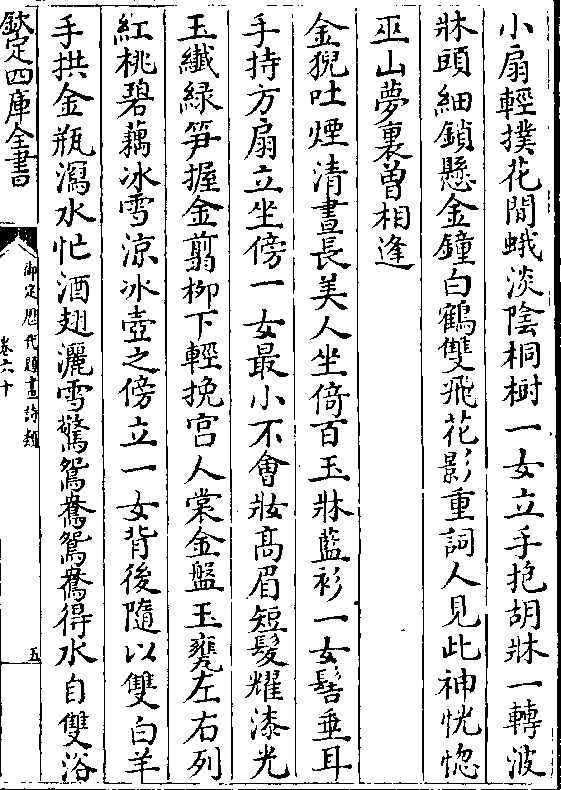 小扇輕撲花間蛾淡陰桐樹一女立手抱胡牀一轉波
牀頭細鎖懸金鐘白鶴雙飛花影重詞人見此神恍惚
巫山夢裏曽相逢
金猊吐煙清晝長美人坐倚百玉牀藍衫一女髻垂耳
手持方扇立坐傍一女最小不㑹妝髙眉短髪耀漆光
玉纖緑笋握金剪栁下輕挽宫人裳金盤玉甕左右列
紅桃碧藕冰雪涼冰壺之傍立一女背後隨以雙白羊
手拱金瓶瀉水忙酒翅灑雪驚鴛鴦鴛鴦得水自雙浴
欽定四庫全書
御定歴代題畫詩類
卷六十
五